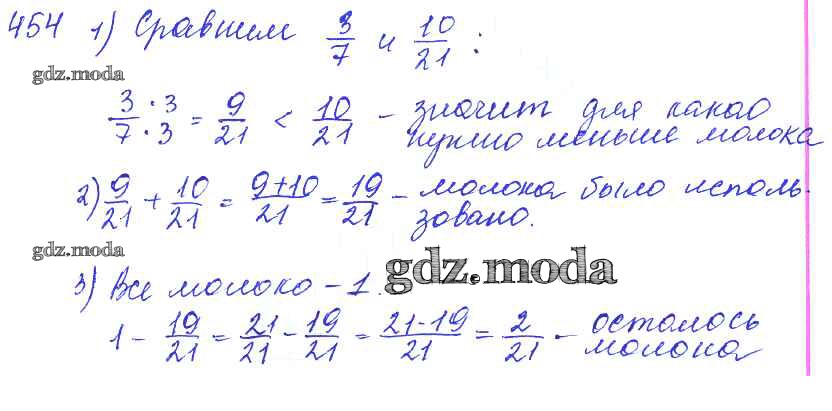 454 1) Сравним 3/7 и 10/21 :
gdz.moda
3·3/7·3 = 9/21 < 10/21 – значит для какао
нужно меньше молока
2) 9/21 + 10/21 = 9+10/21 = 19/21 – молока было исполь-
зовано.
gdz.moda
gdz.moda
3) Все молоко – 1.
1 - 19/21 = 21/21 - 19/21 = 21-19/21 = 2/21 – осталось
молока